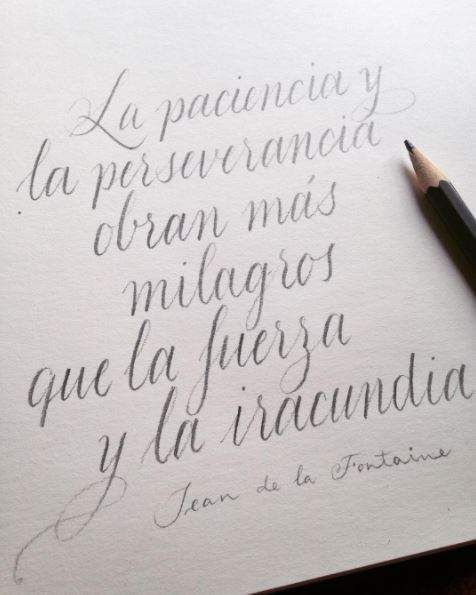 La paciencia y
la perseverancia
obran más
milagros
que la fuerza
y la iracundia
Jean de la Fontaine